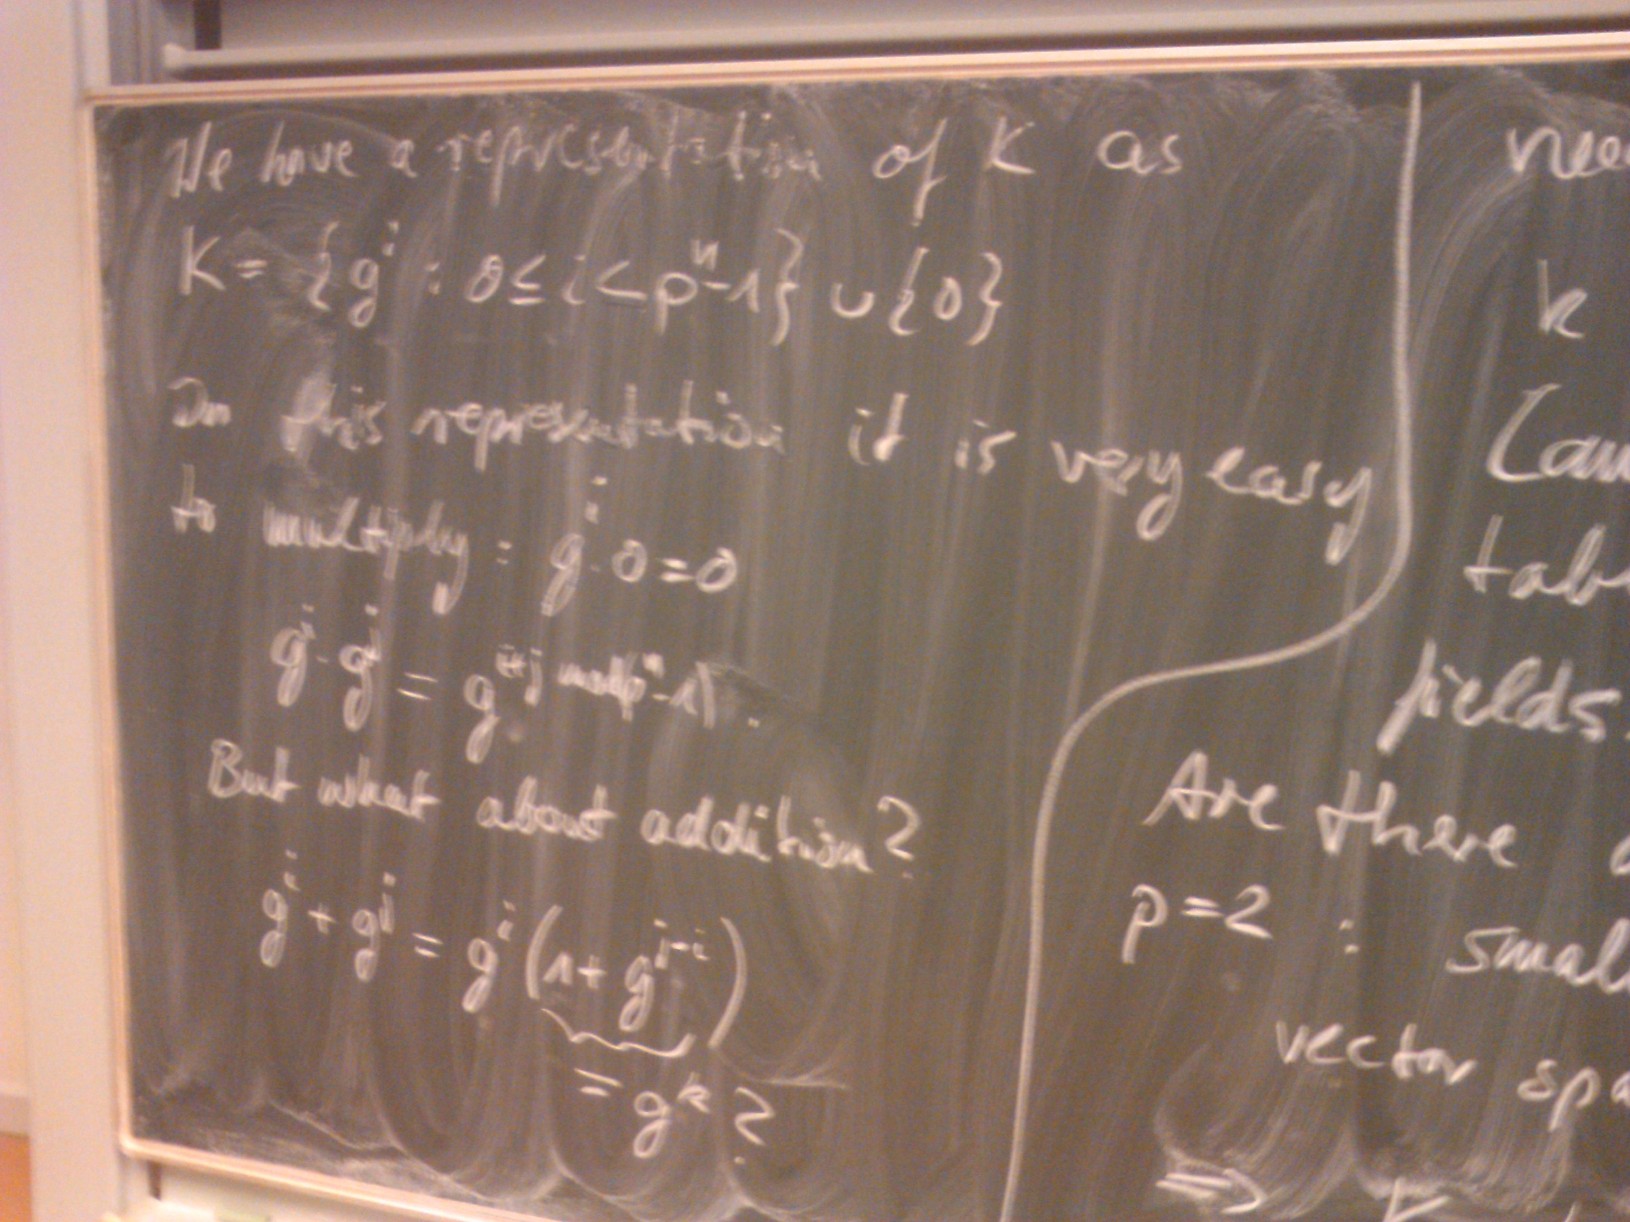 We have a representation of K as
K = {g^i : 0 ≤ i < p^n-1} ∪ {0}
In this representation it is very easy
to multiply : g^i · 0 = 0
g^i · g^j = g^{i+j mod (p^n-1)}.
But what about addition?
g^i + g^j = g^i (1 + g^{j-i})
= g^k ?
nee
k
(au
tab
fields.
Are there
p = 2 : small
vector spa
⇒